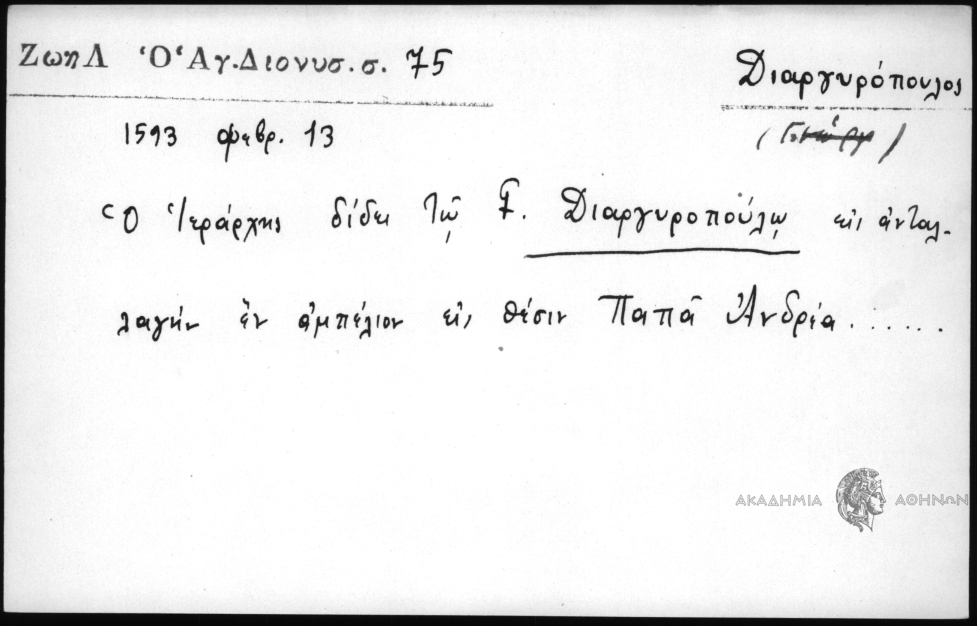 Ζωη Λ Ὁ Ἁγ. Διονυσ. σ. 75
Διαργυρόπουλος
1593 φεβρ. 13
Ὁ Ἱεράρχης δίδει τῷ Γ. Διαργυροπούλῳ εἰς ἀνταλ-
λαγήν ἓν ἀμπέλιον εἰς θέσιν Παπᾶ Ἀνδρέα.......
ΑΚΑΔΗΜΙΑ ΑΘΗΝΩΝ